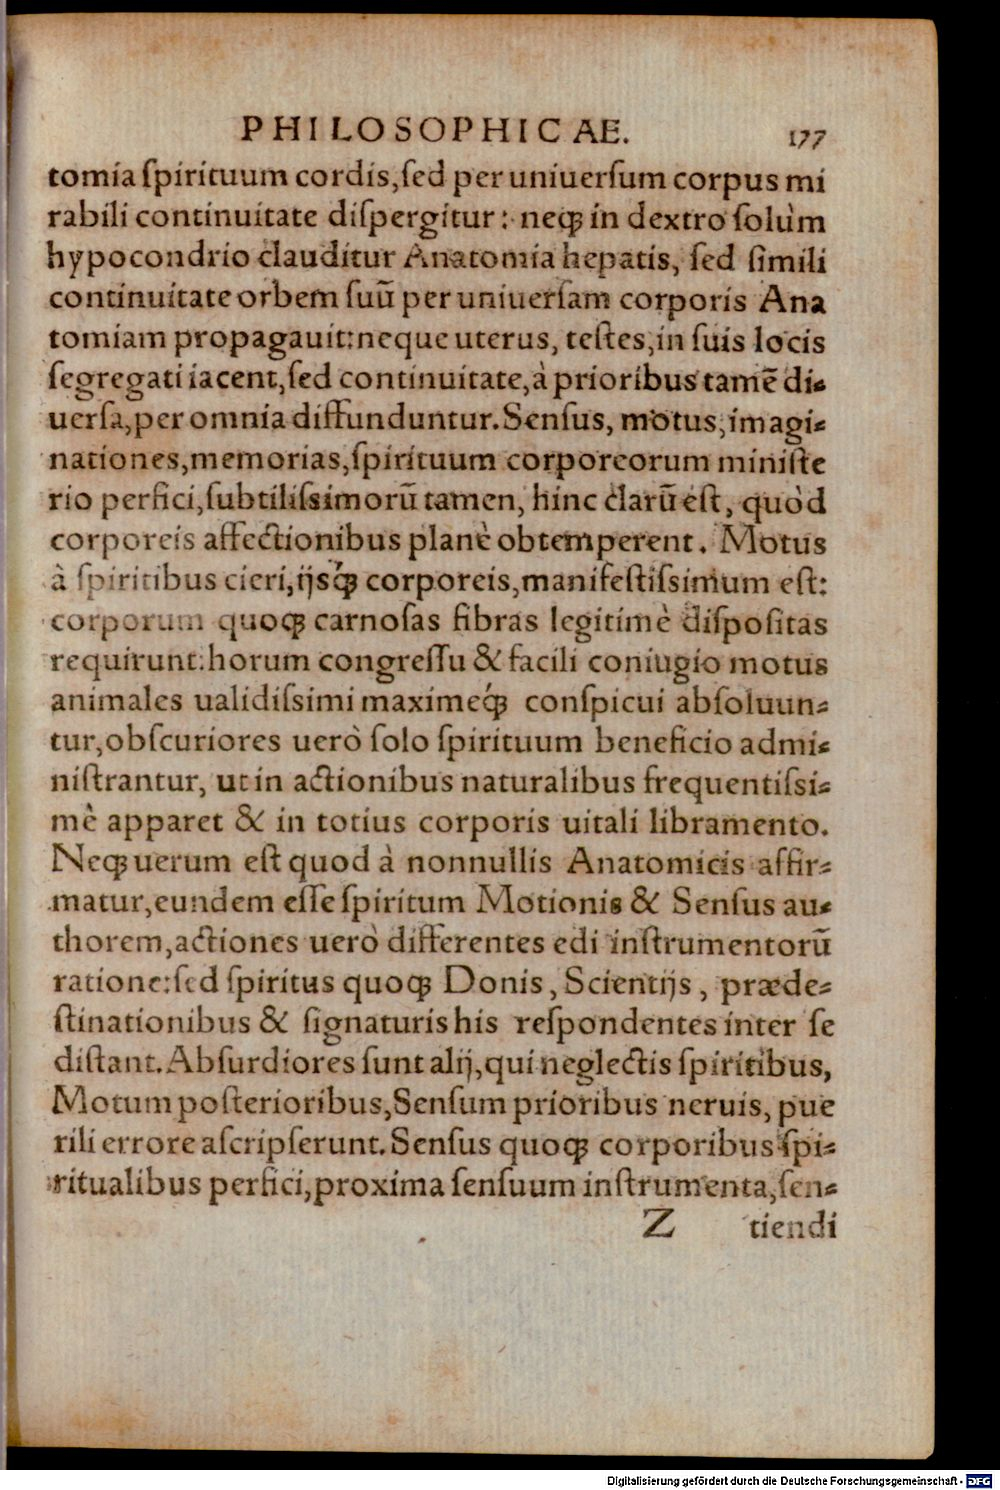 PHILOSOPHICAE. 177
tomia ſpirituum cordis,ſed per uniuerſum corpus mi
rabili continuitate diſpergitur: neqꝫ in dextro ſolùm
hypocondrio clauditur Anatomia hepatis, ſed ſimili
continuitate orbem ſuū per uniuerſam corporis Ana
tomiam propagauit:neque uterus, teſtes,in ſuis locis
ſegregati iacent,ſed continuitate,à prioribus tamē di-
uerſa,per omnia diffunduntur.Senſus, motus,imagi-
nationes,memorias,ſpirituum corporeorum miniſte
rio perfici,ſubtiliſsimorū tamen, hinc clarū eſt, quòd
corporeis affectionibus planè obtemperent. Motus
à ſpiritibus cieri,ijsq́ꝫ corporeis,manifeſtiſsimum eſt:
corporum quoqꝫ carnoſas fibras legitimè diſpoſitas
requirunt:horum congreſſu & facili coniugio motus
animales ualidiſsimi maximeq́ꝫ conſpicui abſoluun-
tur,obſcuriores uerò ſolo ſpirituum beneficio admi-
niſtrantur, ut in actionibus naturalibus frequentiſsi-
mè apparet & in totius corporis uitali libramento.
Neqꝫ uerum eſt quod à nonnullis Anatomicis affir-
matur,eundem eſſe ſpiritum Motionis & Senſus au-
thorem,actiones uerò differentes edi inſtrumentorū
ratione:ſed ſpiritus quoqꝫ Donis, Scientijs, præde-
ſtinationibus & ſignaturis his reſpondentes inter ſe
diſtant.Abſurdiores ſunt alij,qui neglectis ſpiritibus,
Motum poſterioribus,Senſum prioribus neruis, pue
rili errore aſcripſerunt.Senſus quoqꝫ corporibus ſpi-
ritualibus perfici,proxima ſenſuum inſtrumenta,ſen-
Z tiendi
Digitalisierung gefördert durch die Deutsche Forschungsgemeinschaft - DFG